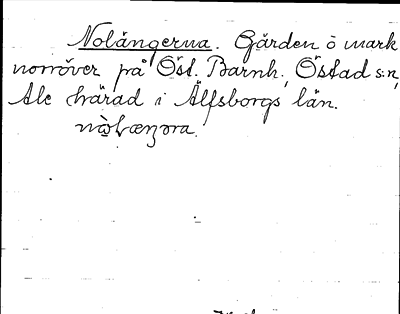 Nolängerna. Gärden ö mark
norröver på Öst. Barnh., Östad s:n,
Ale härad i Älfsborgs län.